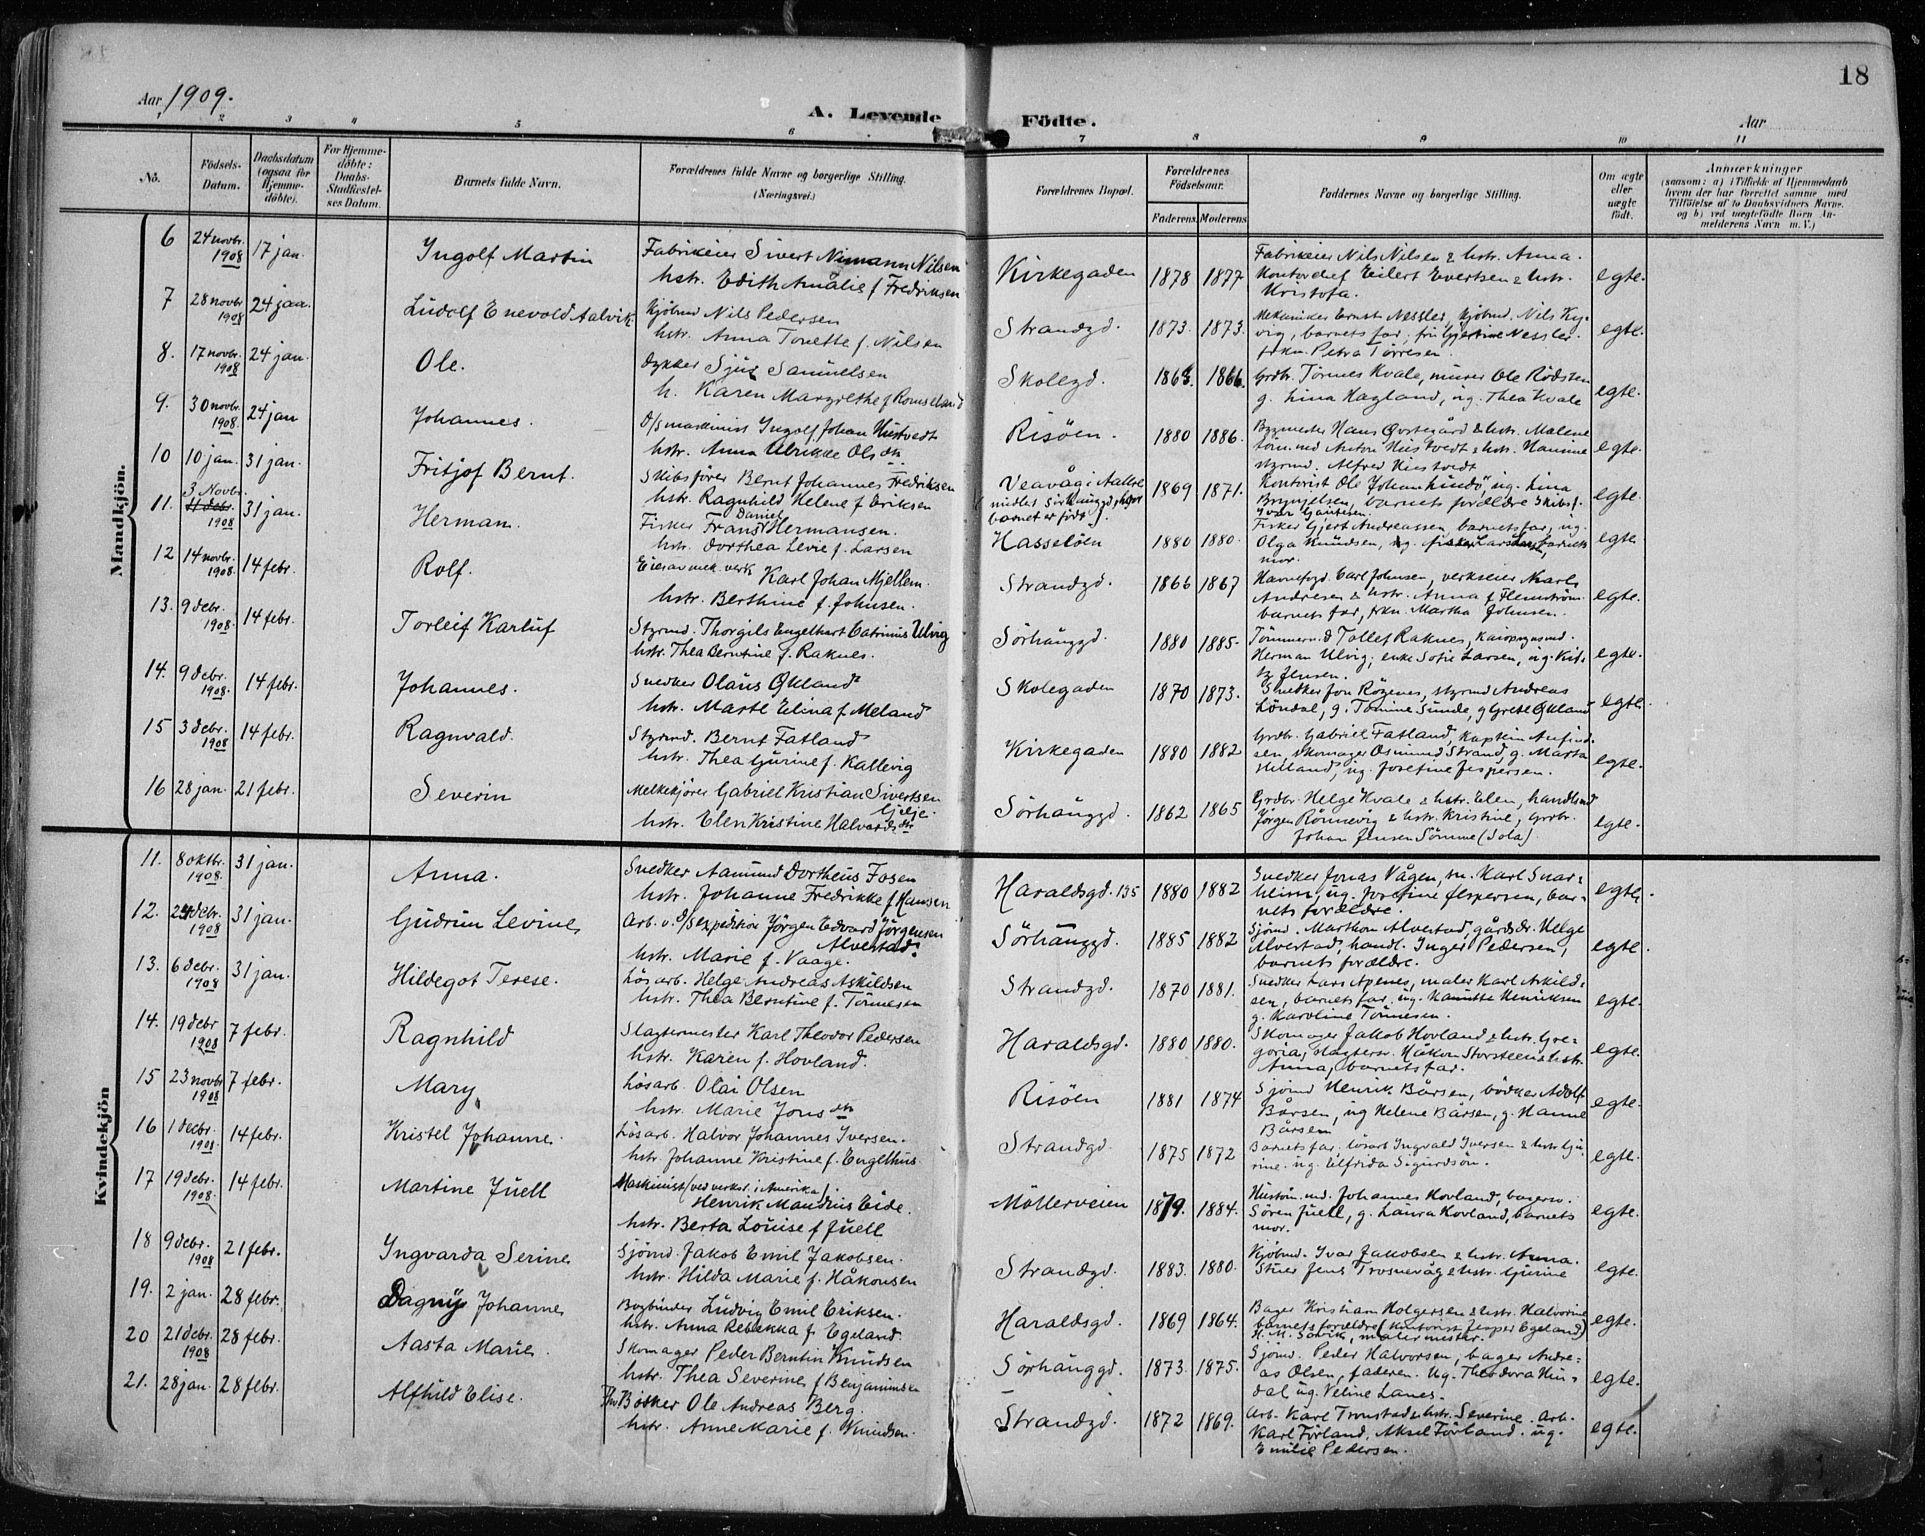 18
Aar 1909.
A. Levende Födte.
Aar
1 2 3 4 5 6 7 8 9 10 11
No.
Födsels-Datum.
Daabsdatum (ogsaa for Hjemme-döbte).
For Hjemme-döbte: Daabs-Stadfæstel-ses Datum.
Barnets fulde Navn.
Forældrenes fulde Navne og borgerlige Stilling. (Næringsvei.)
Forældrenes Bopæl.
Forældrenes Födselsaar.
Faderens Moderens
Faddernes Navne og borgerlige Stilling.
Om ægte eller uægte födt.
Anmærkninger
(saasom: a) i Tilfælde af Hjemmedaab
hvem der har forrettet samme, med
Tilföielse af to Daabsvidners Navne.
og b) ved uægtefödte Börn An-
melderens Navn m. V.)
Mandkjön.
6 24 novbr. 1908 17 jan. Ingolf Martin Fabrikeier Sivert Nimann Nilsen
hstr. Edith Amalie f Fredriksen
Kirkegaden 1878 1877 Fabrikeier Nils Nilsen & hstr. Anna.
Kontorchef Eilert Evertsen & hstr.
Kristofa. egte.
7 28 novbr 1908 24 jan. Ludolf Enevold Aalvik Kjöbmd Nils Pedersen
hstr. Anna Tonette f. Nilsen
Strandgd. 1873. 1873. Mekaniker Ernst Nessler, kjöbmd. Nils Ky-
vig, barnets far; fru Gjertine Nessler.
frkn. Petra Törresen. egte.
8. 17 novbr. 1908 24 jan. Ole. Dykker Sjur Samuelsen
h. Karen Margrethe f Romseland
Skolegd. 1868. 1866. Grdbr. Tönnes Kvale, murer Ole Rödsten
g. Lina Hagland, ug. Thea Kvale egte.
9. 30 novbr. 1908 24 jan Johannes. D/s maskinist Ingolf Johan Hustvedt
hstr. Anna Ulrikke Olsdtr
Risöen. 1880 1886. Bygmester Hans Øvregård & hstr. Malene
töm.md Anton Hustvedt & hstr. Hanne
styrmd. Alfred Hustvedt egte.
10 10 jan. 31 jan. Fritjof Bernt. Skibsförer Bernt Johannes Fredriksen
hstr. Ragnhild Helene f Eriksen
Veavåg i Aakre 1869 1871. Kontorist Ole Johan Lindö, ug. Lina
Brynjelsen, barnets forældre Skibsf.
Ivar Gautesen. egte.
11. 3 Novbr. 1908 31 jan. Herman. Fisker Frans Daniel Hermansen.
hstr. Dorthea Levie f. Larsen
Hasselöen 1880 1880. Fisker Gjert Andreassen barnets far, ug.
Olga Knudsen, barnets
mor. egte.
12 14 novbr. 1908. 14 febr. Rolf. Eier av mek. verk Karl Johan Mjellem.
hstr. Berthine f. Johnsen.
Strandgd. 1866 1867 Havnefogd. Carl Johnsen, verkseier Nkarl
Andresen & hstr. Anna f Flenström
barnets far, frkn. Martha Johnsen. egte.
13. 9 debr. 1908. 14 febr. Torleif Karluf Styrmd. Thorgils Engelhart Catrinius Ulvig
hstr. Thea Berntine f. Raknes.
Sörhauggd. 1880 1885. Tömmermd Tollef Raknes,
Herman Ulvig, enke Sofie Larsen, ug.
Jensen. egte.
14. 9 debr. 1908. 14 febr. Johannes. Snedker Olaus Økland
hstr. Marte Elina f Meland
Skolegaden 1870 1873. Snedker Jon Rögenes, styrmd Andreas
Löndal, g. Tomine Sunde, g Grete Økland egte.
15 3 debr. 1908 14 febr. Ragnvald. Styrmd. Bernt Fatland
hstr. Thea Gurine f. Kallevig
Kirkegaden 1880 1882 Grdbr. Gabriel Fatland, kaptein Anfind-
sen, skomager Osmund Strand, g. Marta
Hilland, ug. Josefine Jespersen. egte.
16 28 jan. 21 febr. Severin Melkekjörer Gabriel Kristian Sivertsen
Gilje.
hstr. Elen Kristine Halvardsdtr
Sörhauggd. 1862 1865 Grdbr. Helge Kvale & hstr. Elen, handlsmd
Jörgen Rönnevig & hstr. Kristine, Grdbr.
Johan Jensen Sömme (Sola) egte.
Kvindekjön
11. 8 oktbr. 1908 31 jan. Anna. Snedker Aamund Dortheus Fosen
hstr. Johanne Fredrikke f Hansen
Haraldsgd. 135 1880 1882 Snedker Jonas Vågen, sn. Karl Snar-
heim, ug. Josefine Jespersen, bar-
nets forældre. egte.
12. 24 debr. 1908 31 jan. Gudrun Levine Arb. v. D/s expedition Jörgen Edvard Jörgensen
Alvestad.
hstr. Marie f. Vaage.
Sörhauggd. 1885 1882 Sjömd. Marthon Alvestad, gårdbr. Helge
Alvestad, handl. Inger Pedersen,
barnets forældre. egte.
13. 6 debr. 1908 31 jan. Hildegot Terese. Lösarb. Helge Andreas Askildsen
hstr. Thea Berntine f. Tönnesen
Strandgd. 1870 1881. Snedker Lars Apenes, maler Karl Askild-
sen, barnets far, ug. Hanette Henriksen
g. Karoline Tönnesen. egte.
14. 19 debr 1908 7 febr. Ragnhild Slagtermester Karl Theodor Pedersen
hstr. Karen f. Hovland.
Haraldsgd. 1880 1880. Skomager Jakob Hovland & hstr. Gre-
goria, slagtersv. Håkon Storsteen & hstr.
Anna, barnets far. egte.
15 23 novbr 1908 7 febr. Mary Lösarb. Olai Olsen
hstr. Marie Jonsdtr
Risöen 1881 1874 Sjömd Henrik Bårsen, bödker Adolf
Bårsen, ug Helene Bårsen, g. Hanne
Bårsen egte.
16 1 debr. 1908 14 febr. Kristel Johanne. Lösarb. Halvor Johannes Iversen.
hstr. Johanne Kristine f. Engelhus.
Strandgd 1875 1872 Barnets far, lösarb Ingvald Iversen & hstr. Gu-
rine. ug. Elfrida Sigurdsön. egte.
17 19 debr. 1908. 14 febr. Martine Juell Maskinist (ved verkst. i Amerika).
Henrik Mandius Eide.
hstr. Berta Louise f Juell
Möllerveien 1879. 1884. Hustöm.md. Johannes Hovland, bagersv.
Sören Juell, g. Laura Hovland, barnets
mor. egte.
18 9 debr. 1908 21 febr. Ingvarda Serine Sjömd. Jakob Emil Jakobsen.
hstr. Hilda Marie f. Håkonsen
Strandgd. 1883. 1880. Kjöbmd. Ivar Jakobsen & hstr. Anna.
Stuer Jens Trosnevåg & hstr. Gurine egte.
19. 2 jan. 28 febr. Dagny Johanne Bogbinder Ludvig Emil Eriksen.
hstr. Anna Rebekka f. Egeland.
Haraldsgd. 1869 1864. Bager Kristian Holgersen & hstr. Halvorine
barnets forældre (kontorist Jesper Egeland)
H. M. Sörvik, malermester. egte.
20 21 debr. 1908 28 febr. Aasta Marie. Skomager Peder Berntin Knudsen
hstr. Thea Severine f Benjaminsen
Sörhauggd. 1873. 1875. Sjömd. Peder Halvorsen, bager Andre-
as Olsen, faderen. Ug. Theodora Kin-
dal ug. Veline Lanes. egte.
21. 28 jan. 28 febr. Alfhild Elise. Bödker Ole Andreas Berg.
hstr. Anne Marie f. Knudsen.
Strandgd. 1872 1869. Arb. Karl Tronstad & hstr. Severine. Arb.
Karl Förland, Aksel Förland. ug.
Emilie Pedersen. egte.